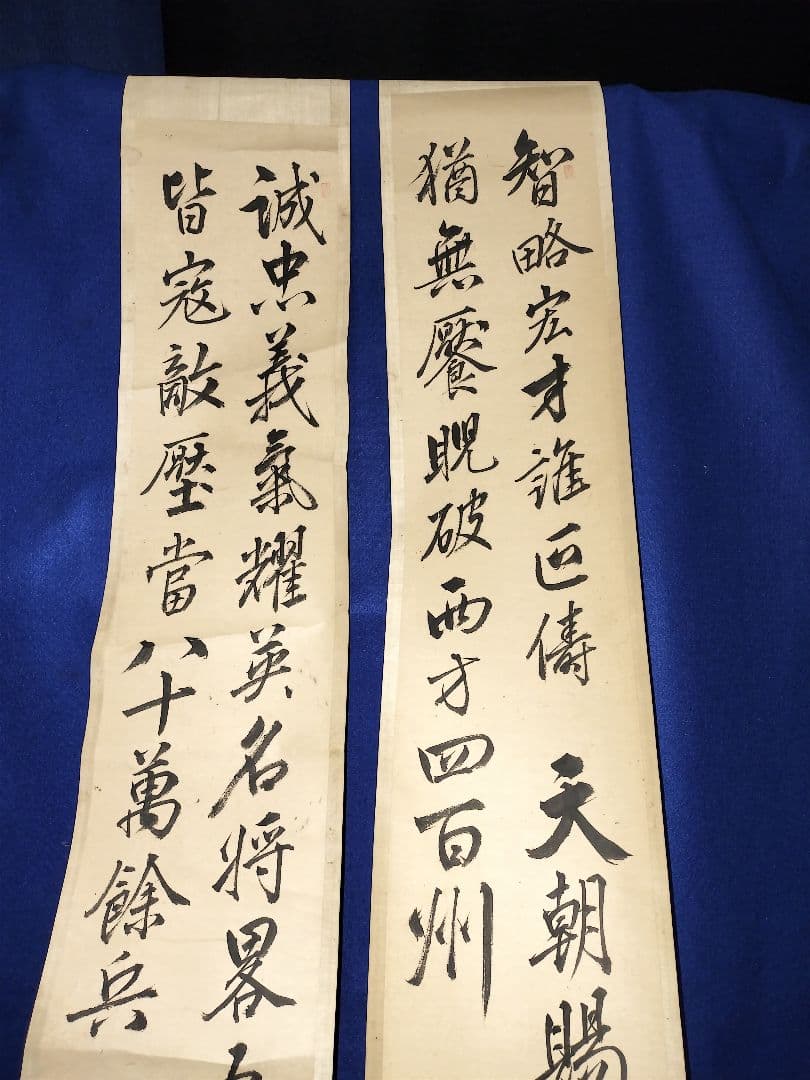 智略宏才誰匹儔 天朝賜
猶無饜睨破両才四百州
誠忠義氣耀英名将畧
皆寇敵壓當八十萬餘兵